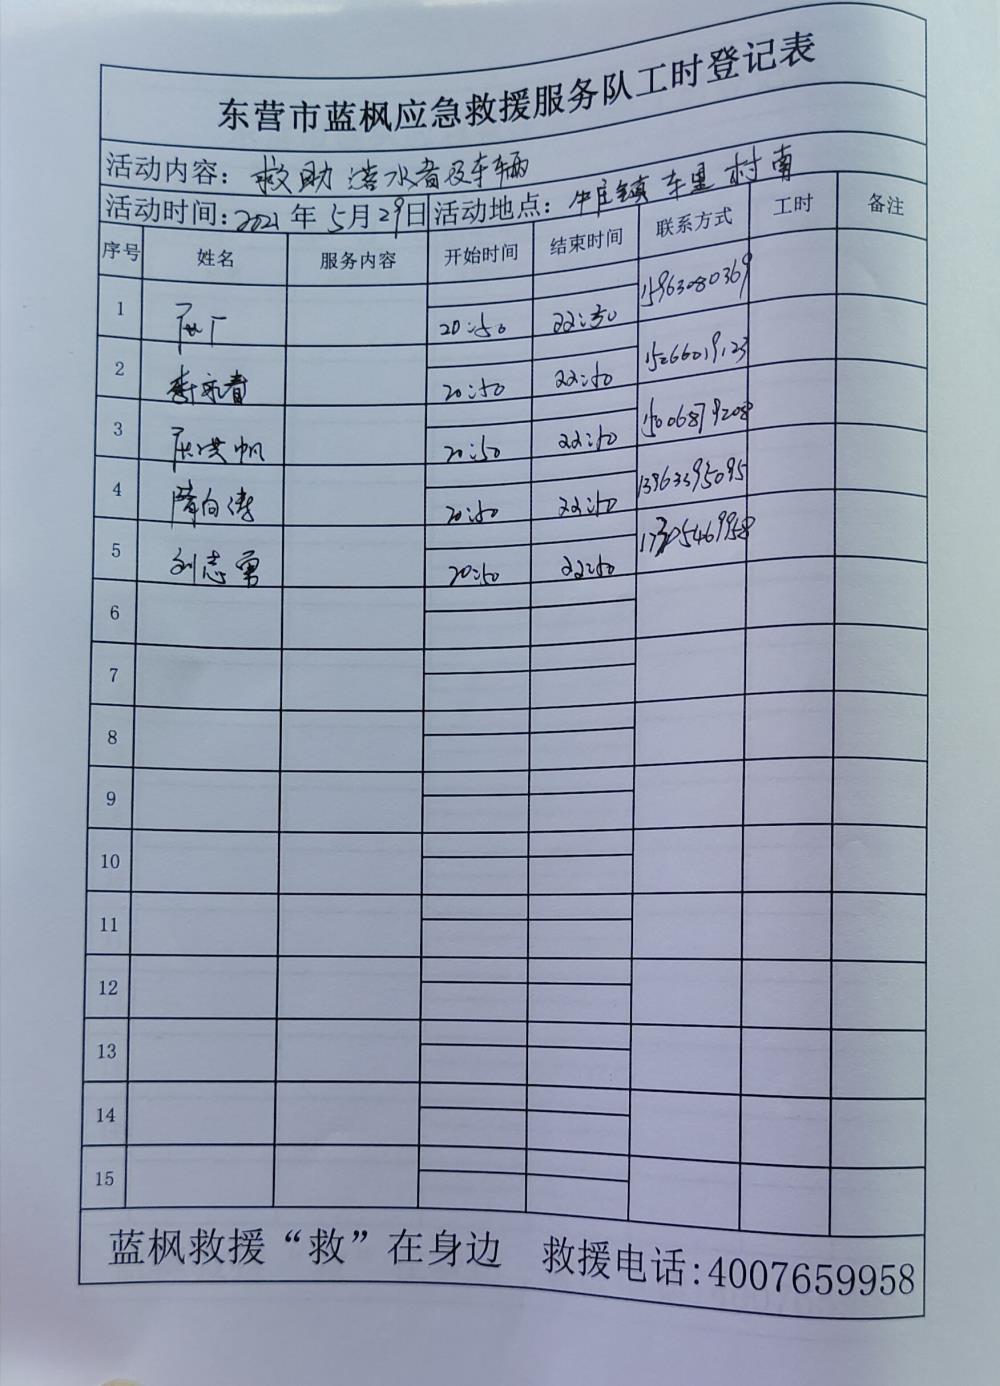 东营市蓝枫应急救援服务队工时登记表
活动内容：救助落水者及车辆
活动时间：2021年5月29日 活动地点：牛庄镇 车里村南
序号 姓名 服务内容 开始时间 结束时间 联系方式 工时 备注
1 20:50 22:50 15963080369
2 20:50 22:50 15266019123
3 洪帆 20:50 22:50 15006879208
4 隋白涛 20:50 22:50 13963395095
5 刘志勇 20:50 22:50
6
7
8
9
10
11
12
13
14
15
蓝枫救援“救”在身边 救援电话：4007659958